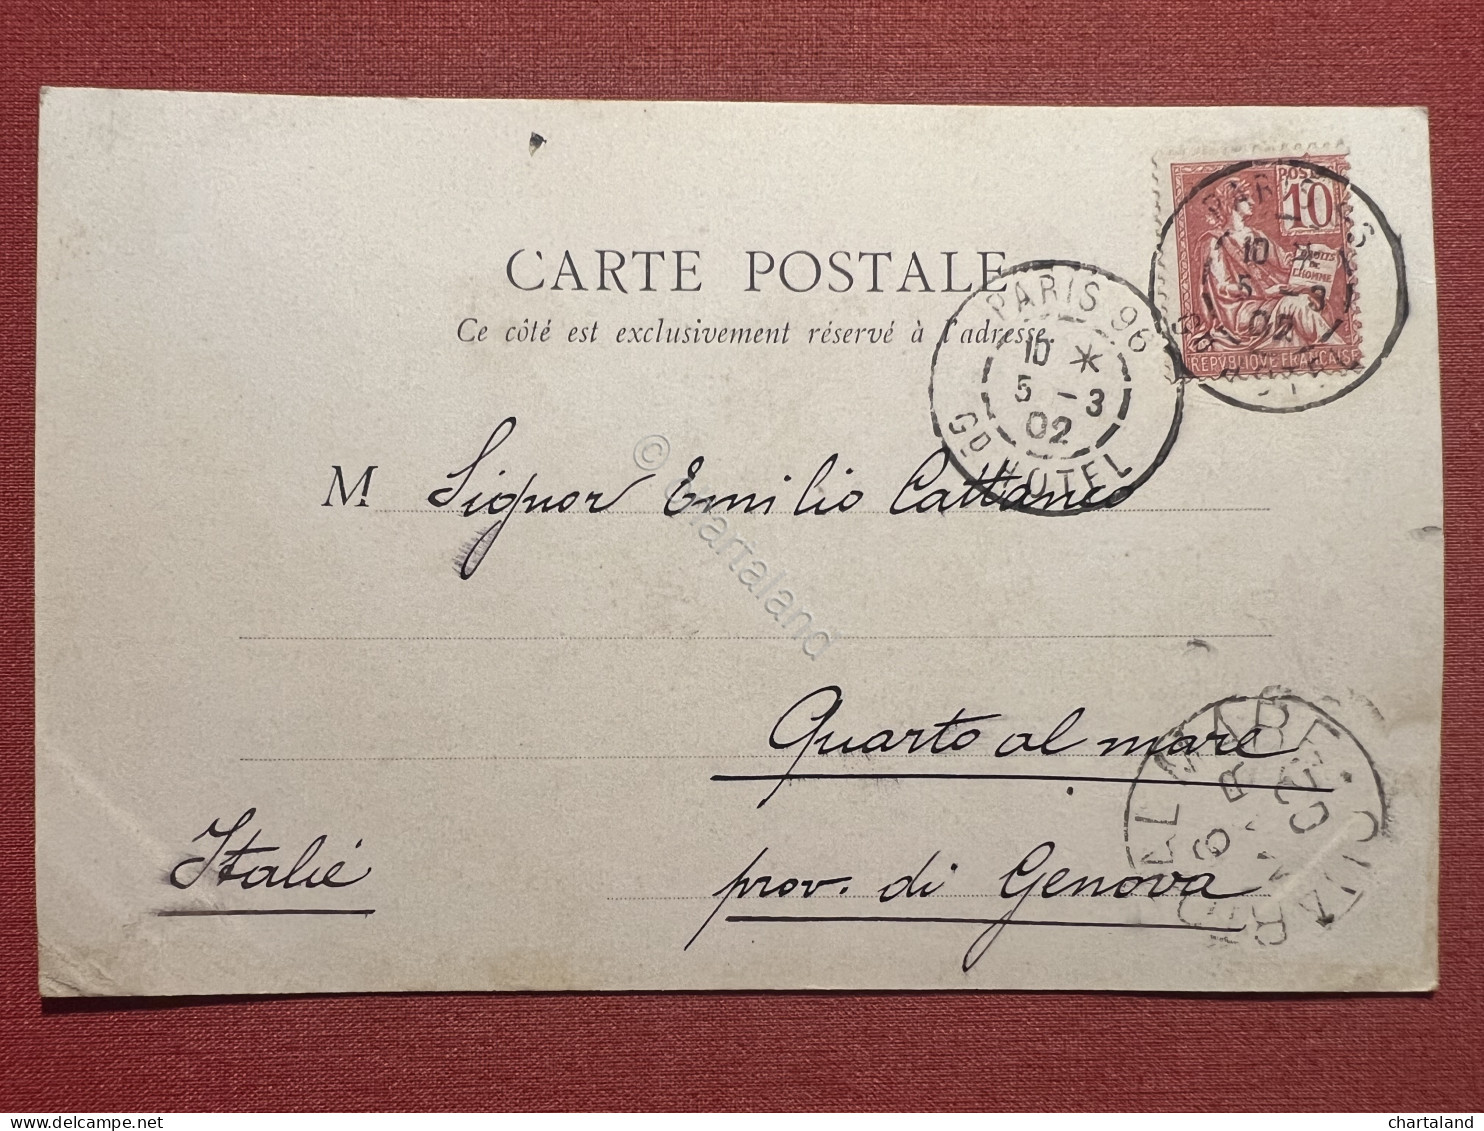 CARTE POSTALE
Ce côté est exclusivement réservé à l'adresse.
POSTES
10
DROITS
DE
L'HOMME
REPVBLIQVE FRANCAISE
PARIS 96
10 *
5 - 3
02
GD HOTEL
PARIS 96
10
5 - 3
02
M Signor Emilio Cattaneo
Quarto al mare
Italié
prov. di Genova
QUARTO AL MARE
6
02
© chartaland
chartaland